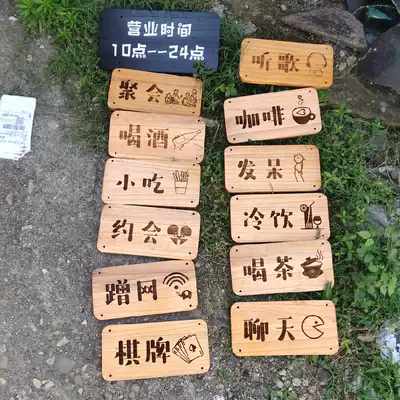 营业时间
10点--24点
聚会
喝酒
小吃
约会
蹭网
棋牌
听歌
咖啡
发呆
冷饮
喝茶
聊天